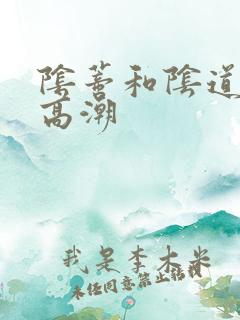 陰蒂和陰道
高潮
我是李木米
未经同意禁止转载